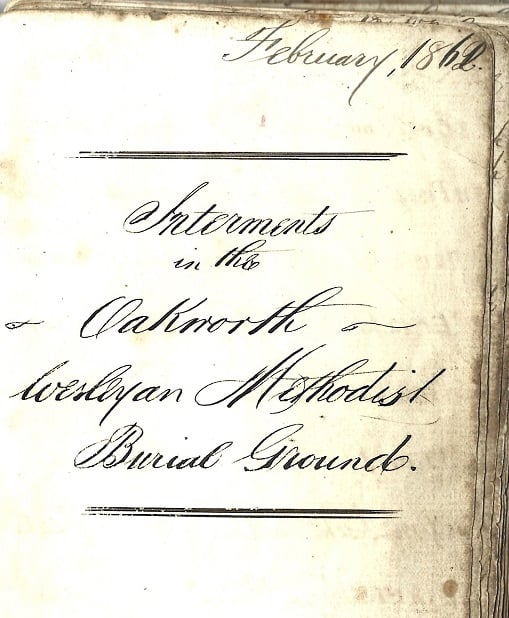 February, 1862.
Interments
in the
Oakworth
Wesleyan Methodist
Burial Ground.